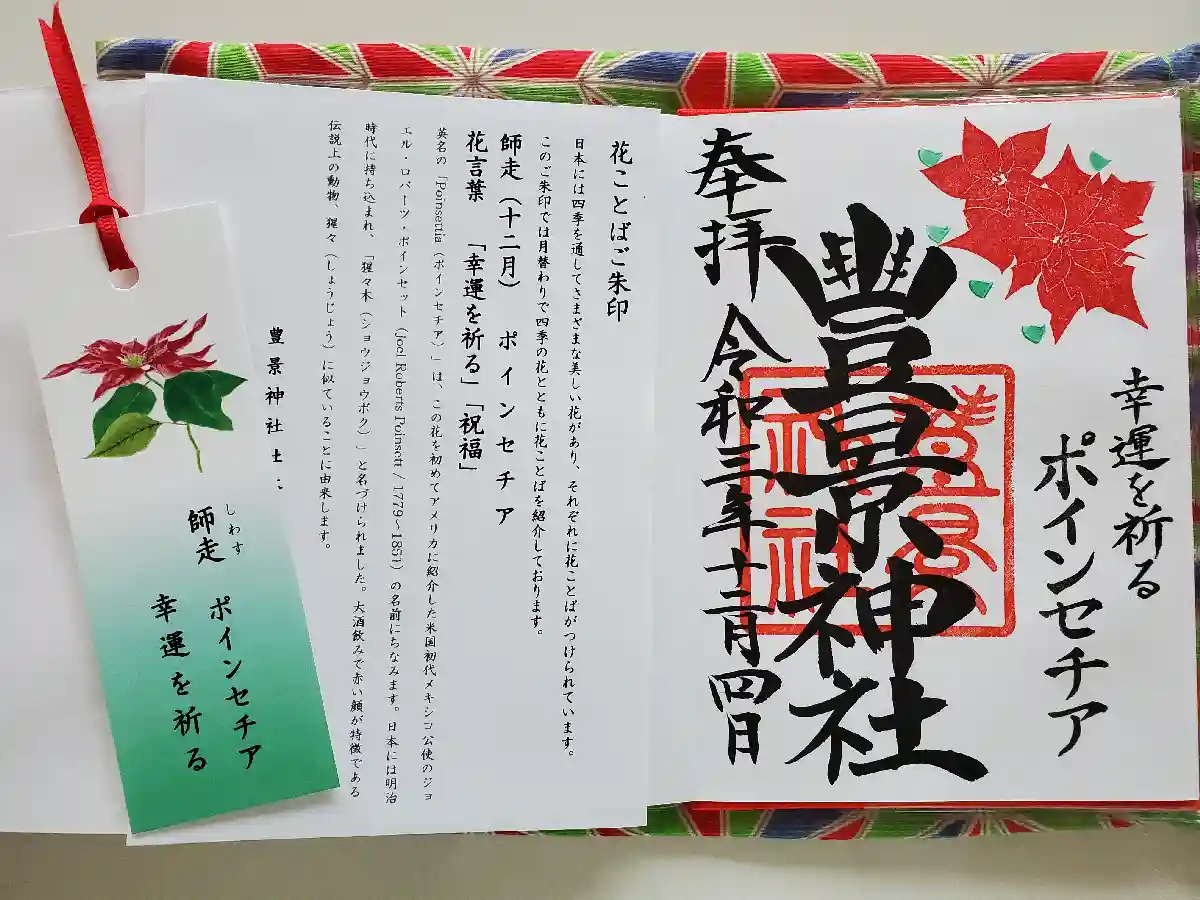 幸運を祈る
ポインセチア
豊景神社
奉拝 令和三年十二月四日
花ことばご朱印
日本には四季を通してさまざまな美しい花があり、それぞれに花ことばがつけられています。
このご朱印では月替わりで四季の花とともに花ことばを紹介しております。
師走（十二月） ポインセチア
花言葉 「幸運を祈る」「祝福」
英名の「Poinsettia（ポインセチア）」は、この花を初めてアメリカに紹介した米国初代メキシコ公使のジョ
エル・ロバーツ・ポインセット（Joel Roberts Poinsett / 1779～1851）の名前にちなみます。日本には明治
時代に持ち込まれ、「猩々木（ショウジョウボク）」と名づけられました。大酒飲みで赤い顔が特徴である
伝説上の動物、猩々（しょうじょう）に似ていることに由来します。
豊景神社
しわす
師走 ポインセチア
幸運を祈る